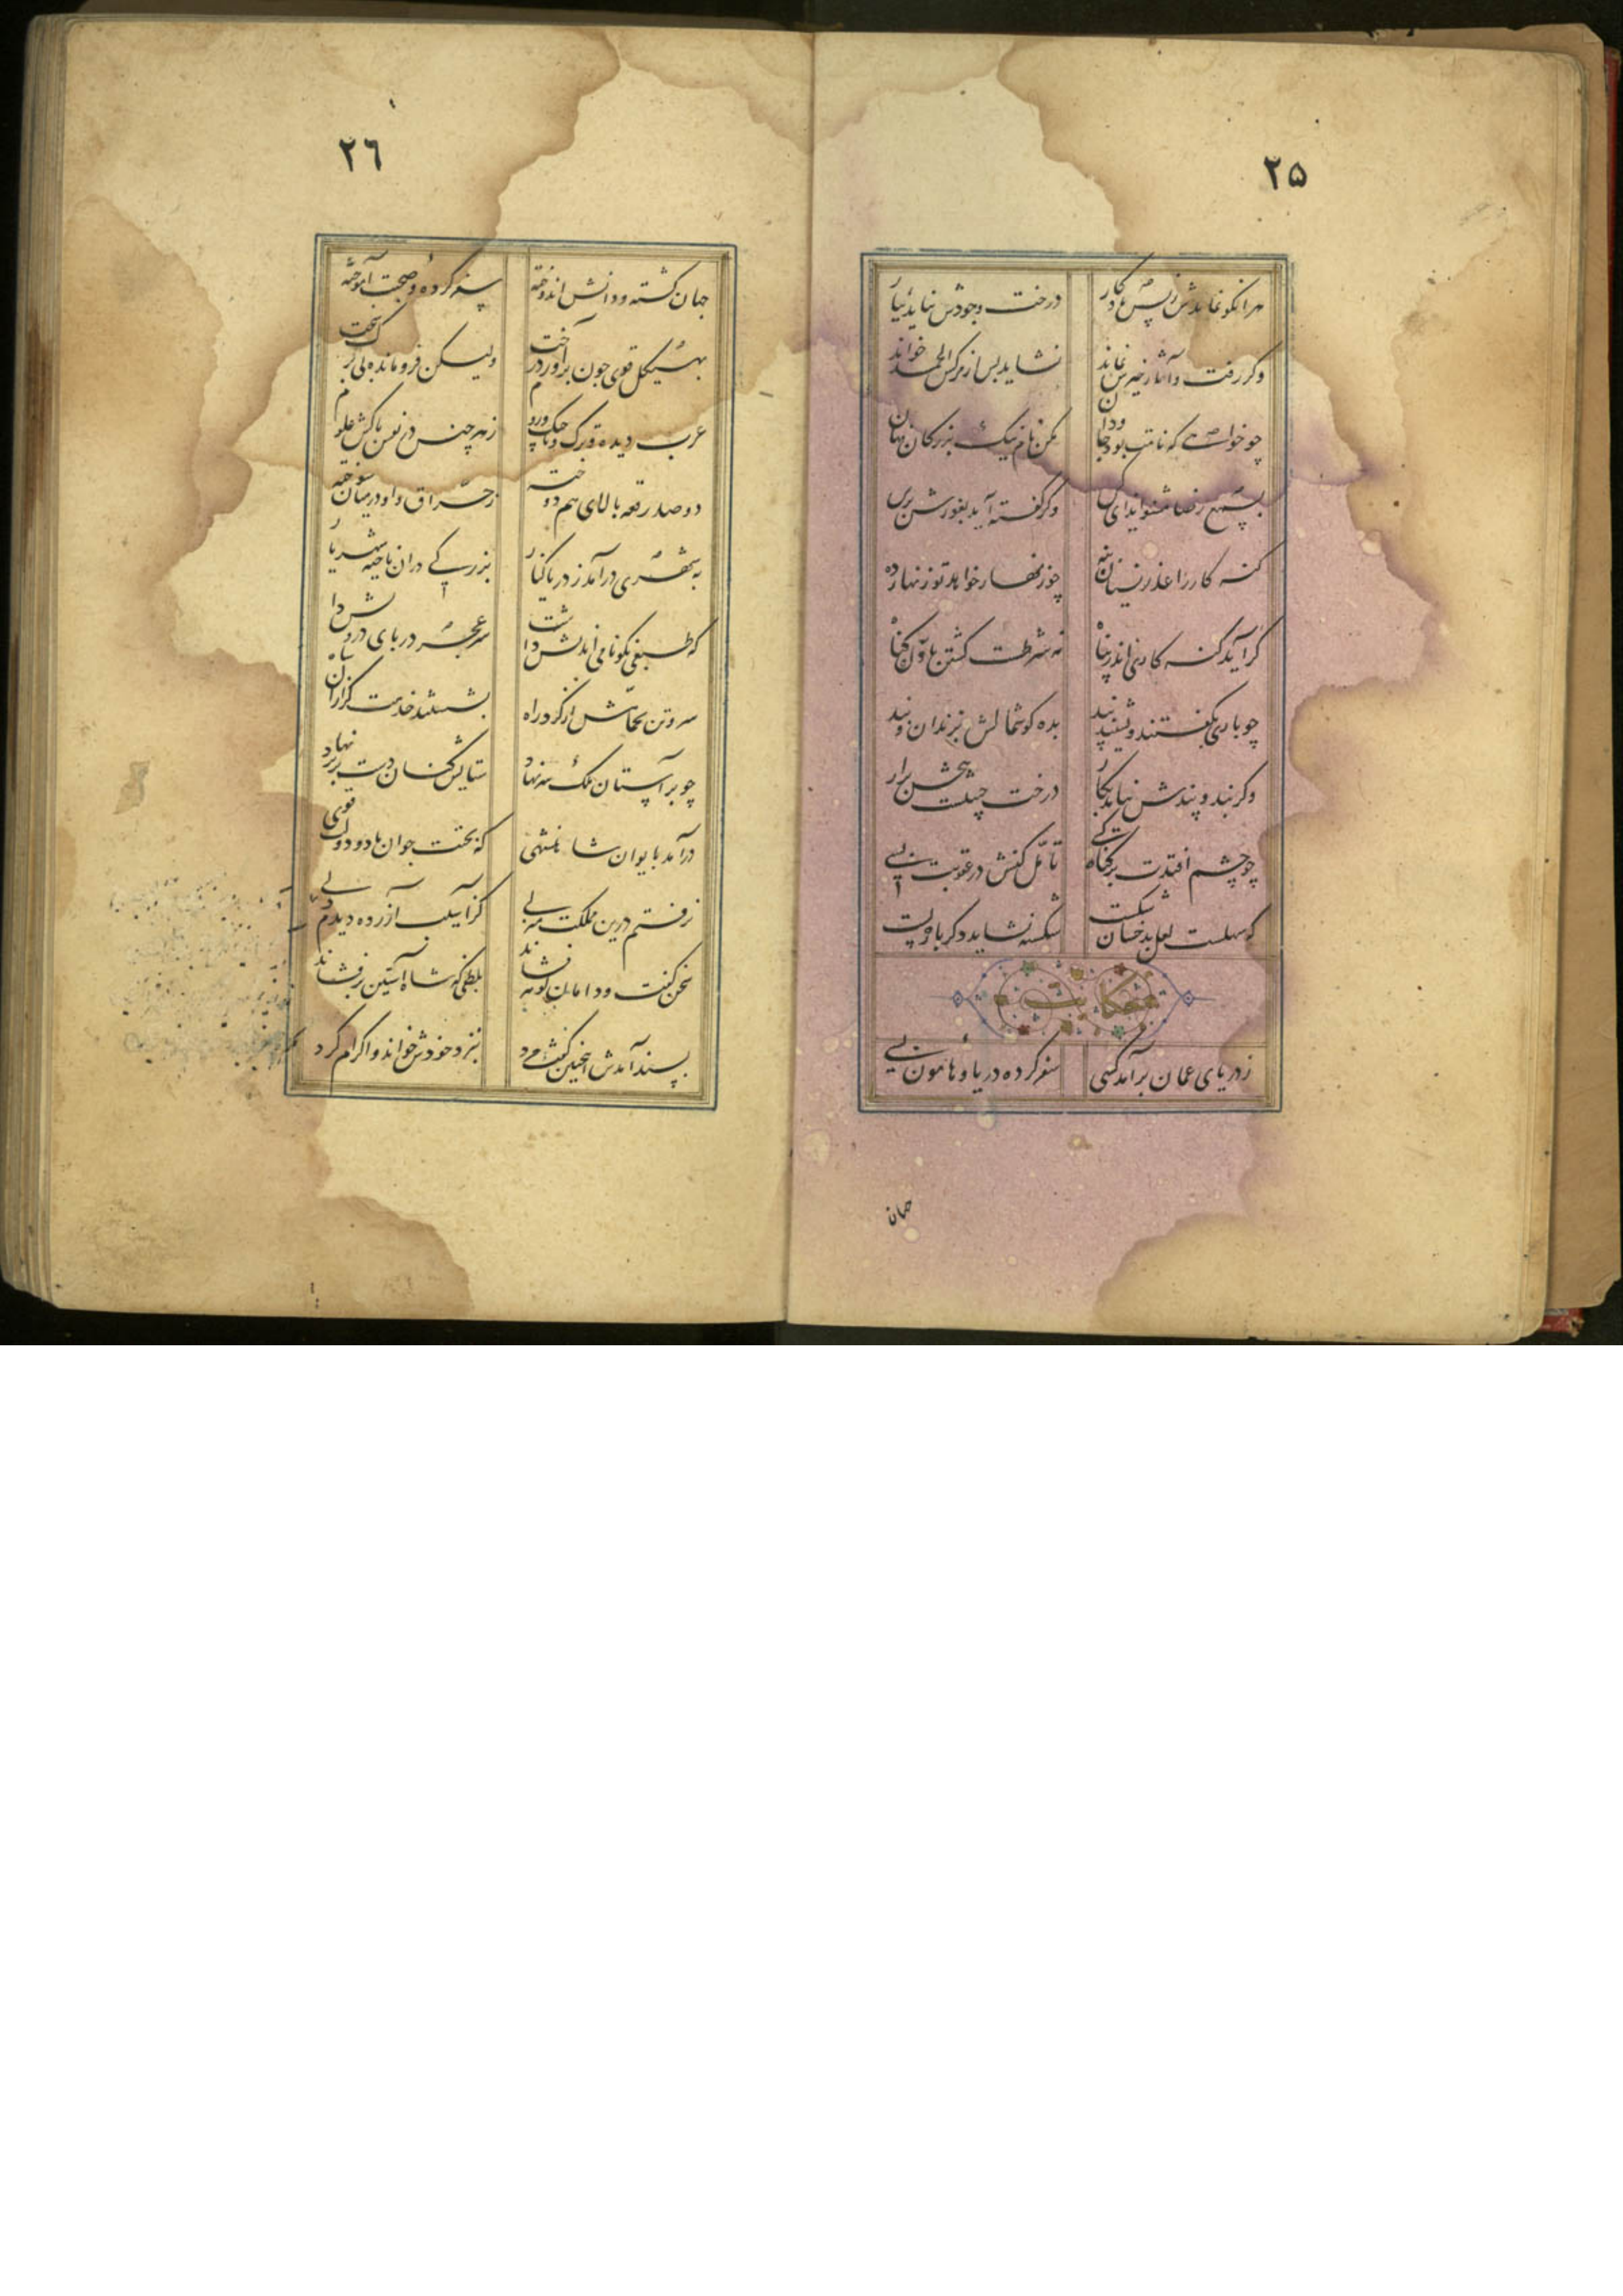 ۲۵
هر انکو نماند پسش یادکار درخت وجودش نیاید ببار
وکر رفت و آثار خیرش نماند نشاید پس از مرکش الحمد خواند
چو خواهی که نامت بود جاودان مکن نام نیک بزرکان نهان
بسمع رضا مشنو ایذای کس وکر کفته آید بغورش برس
کنه کار را عذر نسیان بنه چو زنهار خواهد تو زنهار ده
کر آید کنه کاری اندر پناه نه شرطست کشتن باول کناه
چو باری بکفتند و نشنید پند بده کوشمالش بزندان و بند
وکر بند و پندش نیاید بکار درخت خبیثست بیخش برار
چو خشم آیدت بر کناه کسی تامل کنش در عقوبت بسی
که سهلست لعل بدخشان شکست شکسته نشاید دکر باره بست
حکایت
ز دریای عمان برآمد کسی سفر کرده دریا و هامون بسی
جهان
۲٦
جهان کشته و دانش اندوخته سفر کرده و صحبت آموخته
بهیکل قوی چون تناور درخت ولیکن فرو مانده بی برک سخت
عرب دیده و ترک و تاجیک و روم ز هر جنس در نفس پاکش علوم
دو صد رقعه بالای هم دوخته ز حراق و او در میان سوخته
به شهری درآمد ز دریا کنار بزرکی در ان ناحیه شهریار
که طبعی نکونامی اندیش داشت سر عجز در پای درویش داشت
بشستند خدمت کزاران شاه سر و تن بحمامش از کرد راه
چو بر آستان ملک سر نهاد ستایش کنان دست بر بر نهاد
درآمد بایوان شاهنشهی که بختت جوان باد و دولت قوی
نرفتم درین مملکت منزلی کز آسیب آزرده دیدم دلی
سخن کفت و دامان کوهر فشاند بلطفی که شاه آستین برفشاند
پسند آمدش این چنین کفت مرد بنزد خودش خواند و اکرام کرد